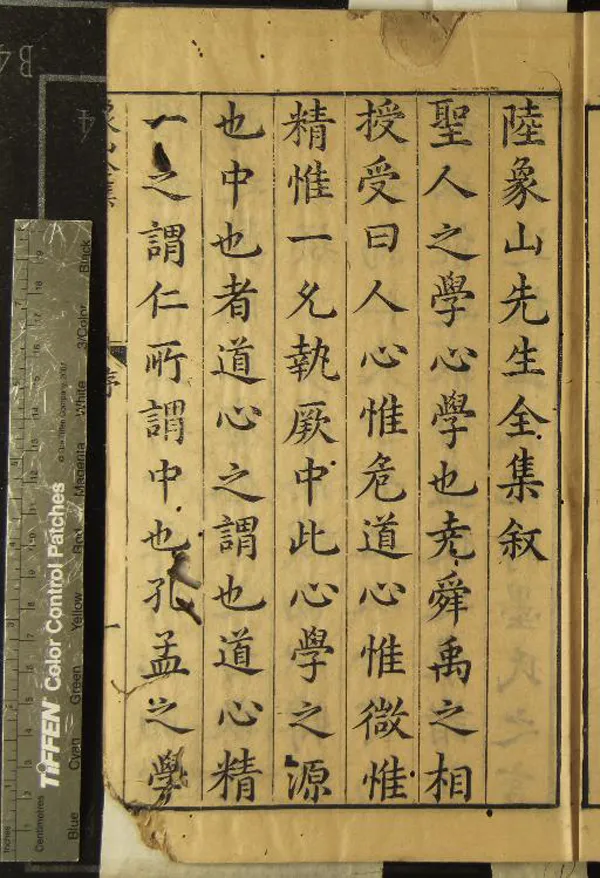 陸象山先生全集叙
聖人之學心學也尭舜禹之相
授受曰人心惟危道心惟微惟
精惟一允執厥中此心學之源
也中也者道心之謂也道心精
一之謂仁所謂中也孔孟之學
序
一
TIFFEN Color Control Patches
© The Tiffen Company, 2007
Blue Cyan Green Yellow Red Magenta White 3/Color Black
Inches
Centimetres
B4
4